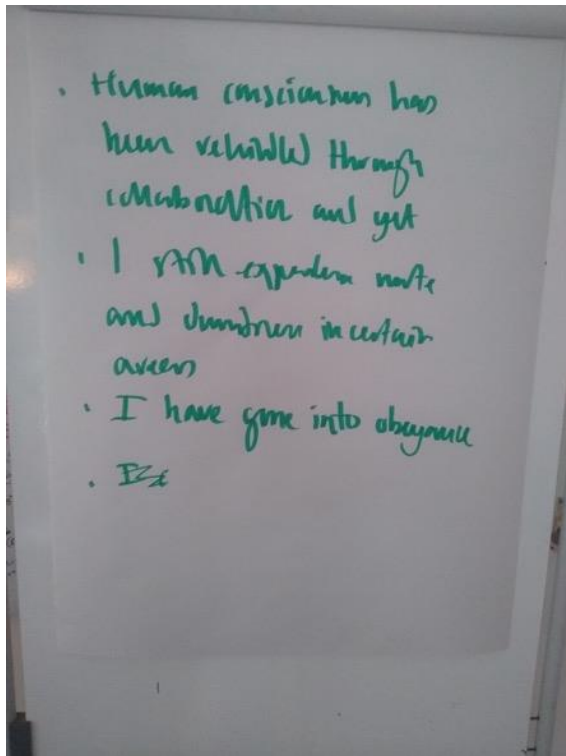 . Human consciousness has
been rekindled through
collaboration and yet
. I still experience mute
and dumbness in certain
areas
. I have gone into abeyance
.